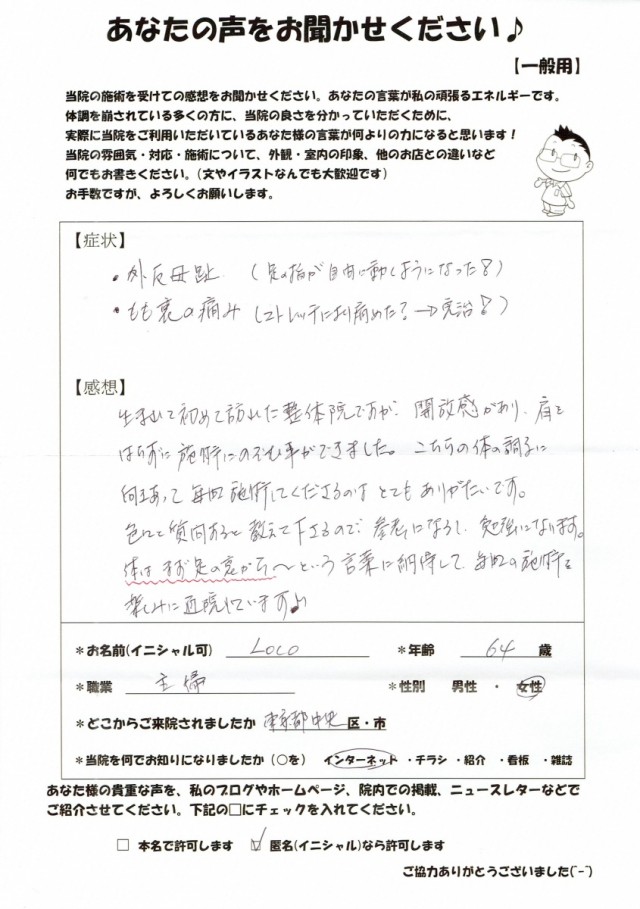 あなたの声をお聞かせください♪
【一般用】
当院の施術を受けての感想をお聞かせください。あなたの言葉が私の頑張るエネルギーです。
体調を崩されている多くの方に、当院の良さを分かっていただくために、
実際に当院をご利用いただいているあなた様の言葉が何よりの力になると思います！
当院の雰囲気・対応・施術について、外観・室内の印象、他のお店との違いなど
何でもお書きください。（文やイラストなんでも大歓迎です）
お手数ですが、よろしくお願いします。
【症状】
・外反母趾 （足の指が自由に動くようになった！）
・もも裏の痛み （ストレッチにより痛めた？→完治！）
【感想】
生まれて初めて訪れた整体院ですが、開放感があり、肩を
はらずに施術にのぞむ事ができました。こちらの体の調子に
向きあって毎回施術してくださるのは とてもありがたいです。
色々と質問あると教えて下さるので、参考になるし、勉強になります。
体はまず足の裏から〜という言葉に納得して、毎回の施術を
楽しみに通院しています♪
＊お名前(イニシャル可) LOCO ＊年齢 64 歳
＊職業 主婦 ＊性別 男性 ・ 女性
＊どこからご来院されましたか 東京都中央 区・市
＊当院を何でお知りになりましたか（○を） インターネット ・チラシ ・紹介 ・看板 ・雑誌
あなた様の貴重な声を、私のブログやホームページ、院内での掲載、ニュースレターなどで
ご紹介させてください。下記の□にチェックを入れてください。
□ 本名で許可します ☑ 匿名(イニシャル)なら許可します
ご協力ありがとうございました(^-^)